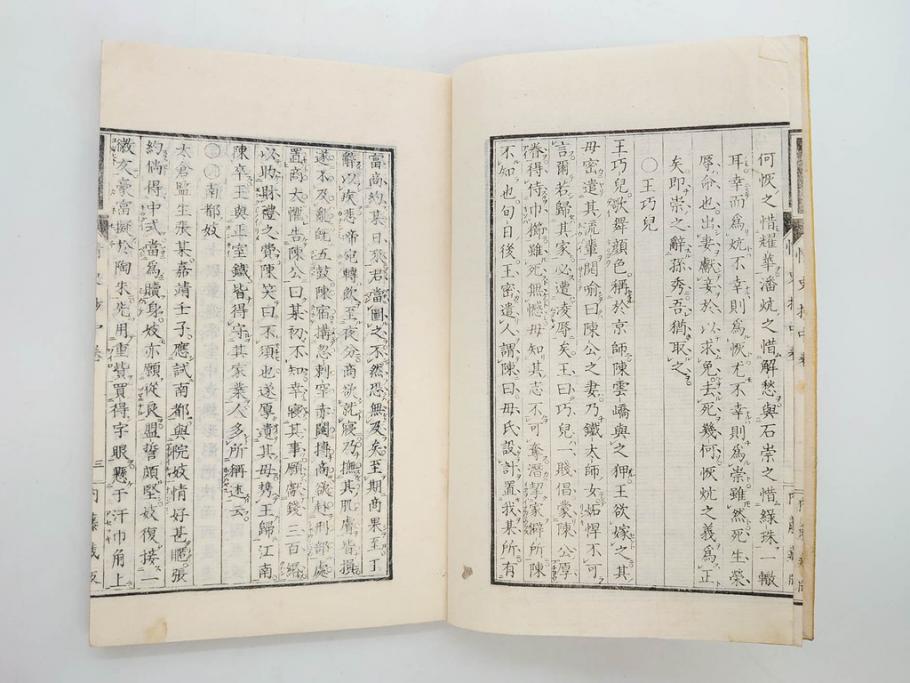 何恢之惜耀華潘炕之惜解愁與石崇之惜綠珠一轍
耳幸而為炕不幸則為恢尤不幸則為崇雖然死生榮
辱命也出妻獻妾於以求免去死幾何恢炕之義為正
矣即崇之辭孫秀吾猶取之
〇王巧兒
王巧兒歌舞顔色稱於京師陳雲嶠與之狎王欲嫁之其
母密遣其流輩開喻曰陳公之妻乃鐵太師女妬悍不可
言爾若歸其家必遭凌辱矣王曰巧兒一賤倡蒙陳公厚
眷得侍巾櫛雖死無憾母知其志不可奪潛挈家僻所陳
不知也旬日後王密遣人謂陳曰母氏設計置我某所有
富商約某日來君當圖之不然恐無及矣至期商果至王
辭以疾悲啼宛轉飲至夜分商欲就寢乃撫其肌膚皆損
遂不及亂既五鼓陳宿搆忽剌罕赤闥縛商欲赴刑部處
置商大懼告陳公曰某初不知幸寢其事願獻錢三百緡
以助財禮之費陳笑曰不須也遂厚遺其母携王歸江南
陳卒王與正室鐵皆得守其家業人多所稱述云
〇南都妓
太倉監生張某嘉靖壬子應試南都與院妓情好甚暱張
約倘得中式當為贖身妓亦願從良盟誓頗堅妓復接一
徽友豪富擬於陶朱先用重貲買得字眼懸于汗巾角上
情史抄中卷 三 内藤蔵版